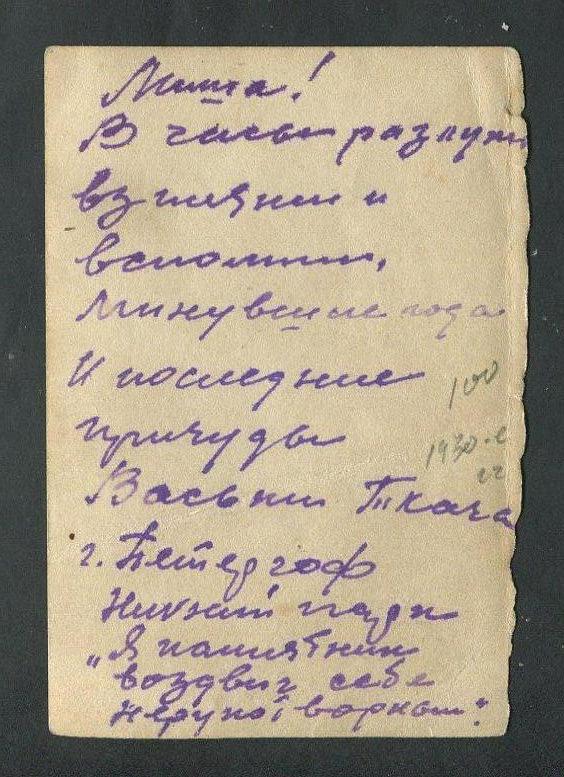 Миша!
В часы разлуки
взгляни и
вспомни,
Минувшие года
И последние
причуды
Васьки Ткача
100
1930-е
гг
г. Петергоф
Нижний парк
"Я памятник
воздвиг себе
нерукотворный".